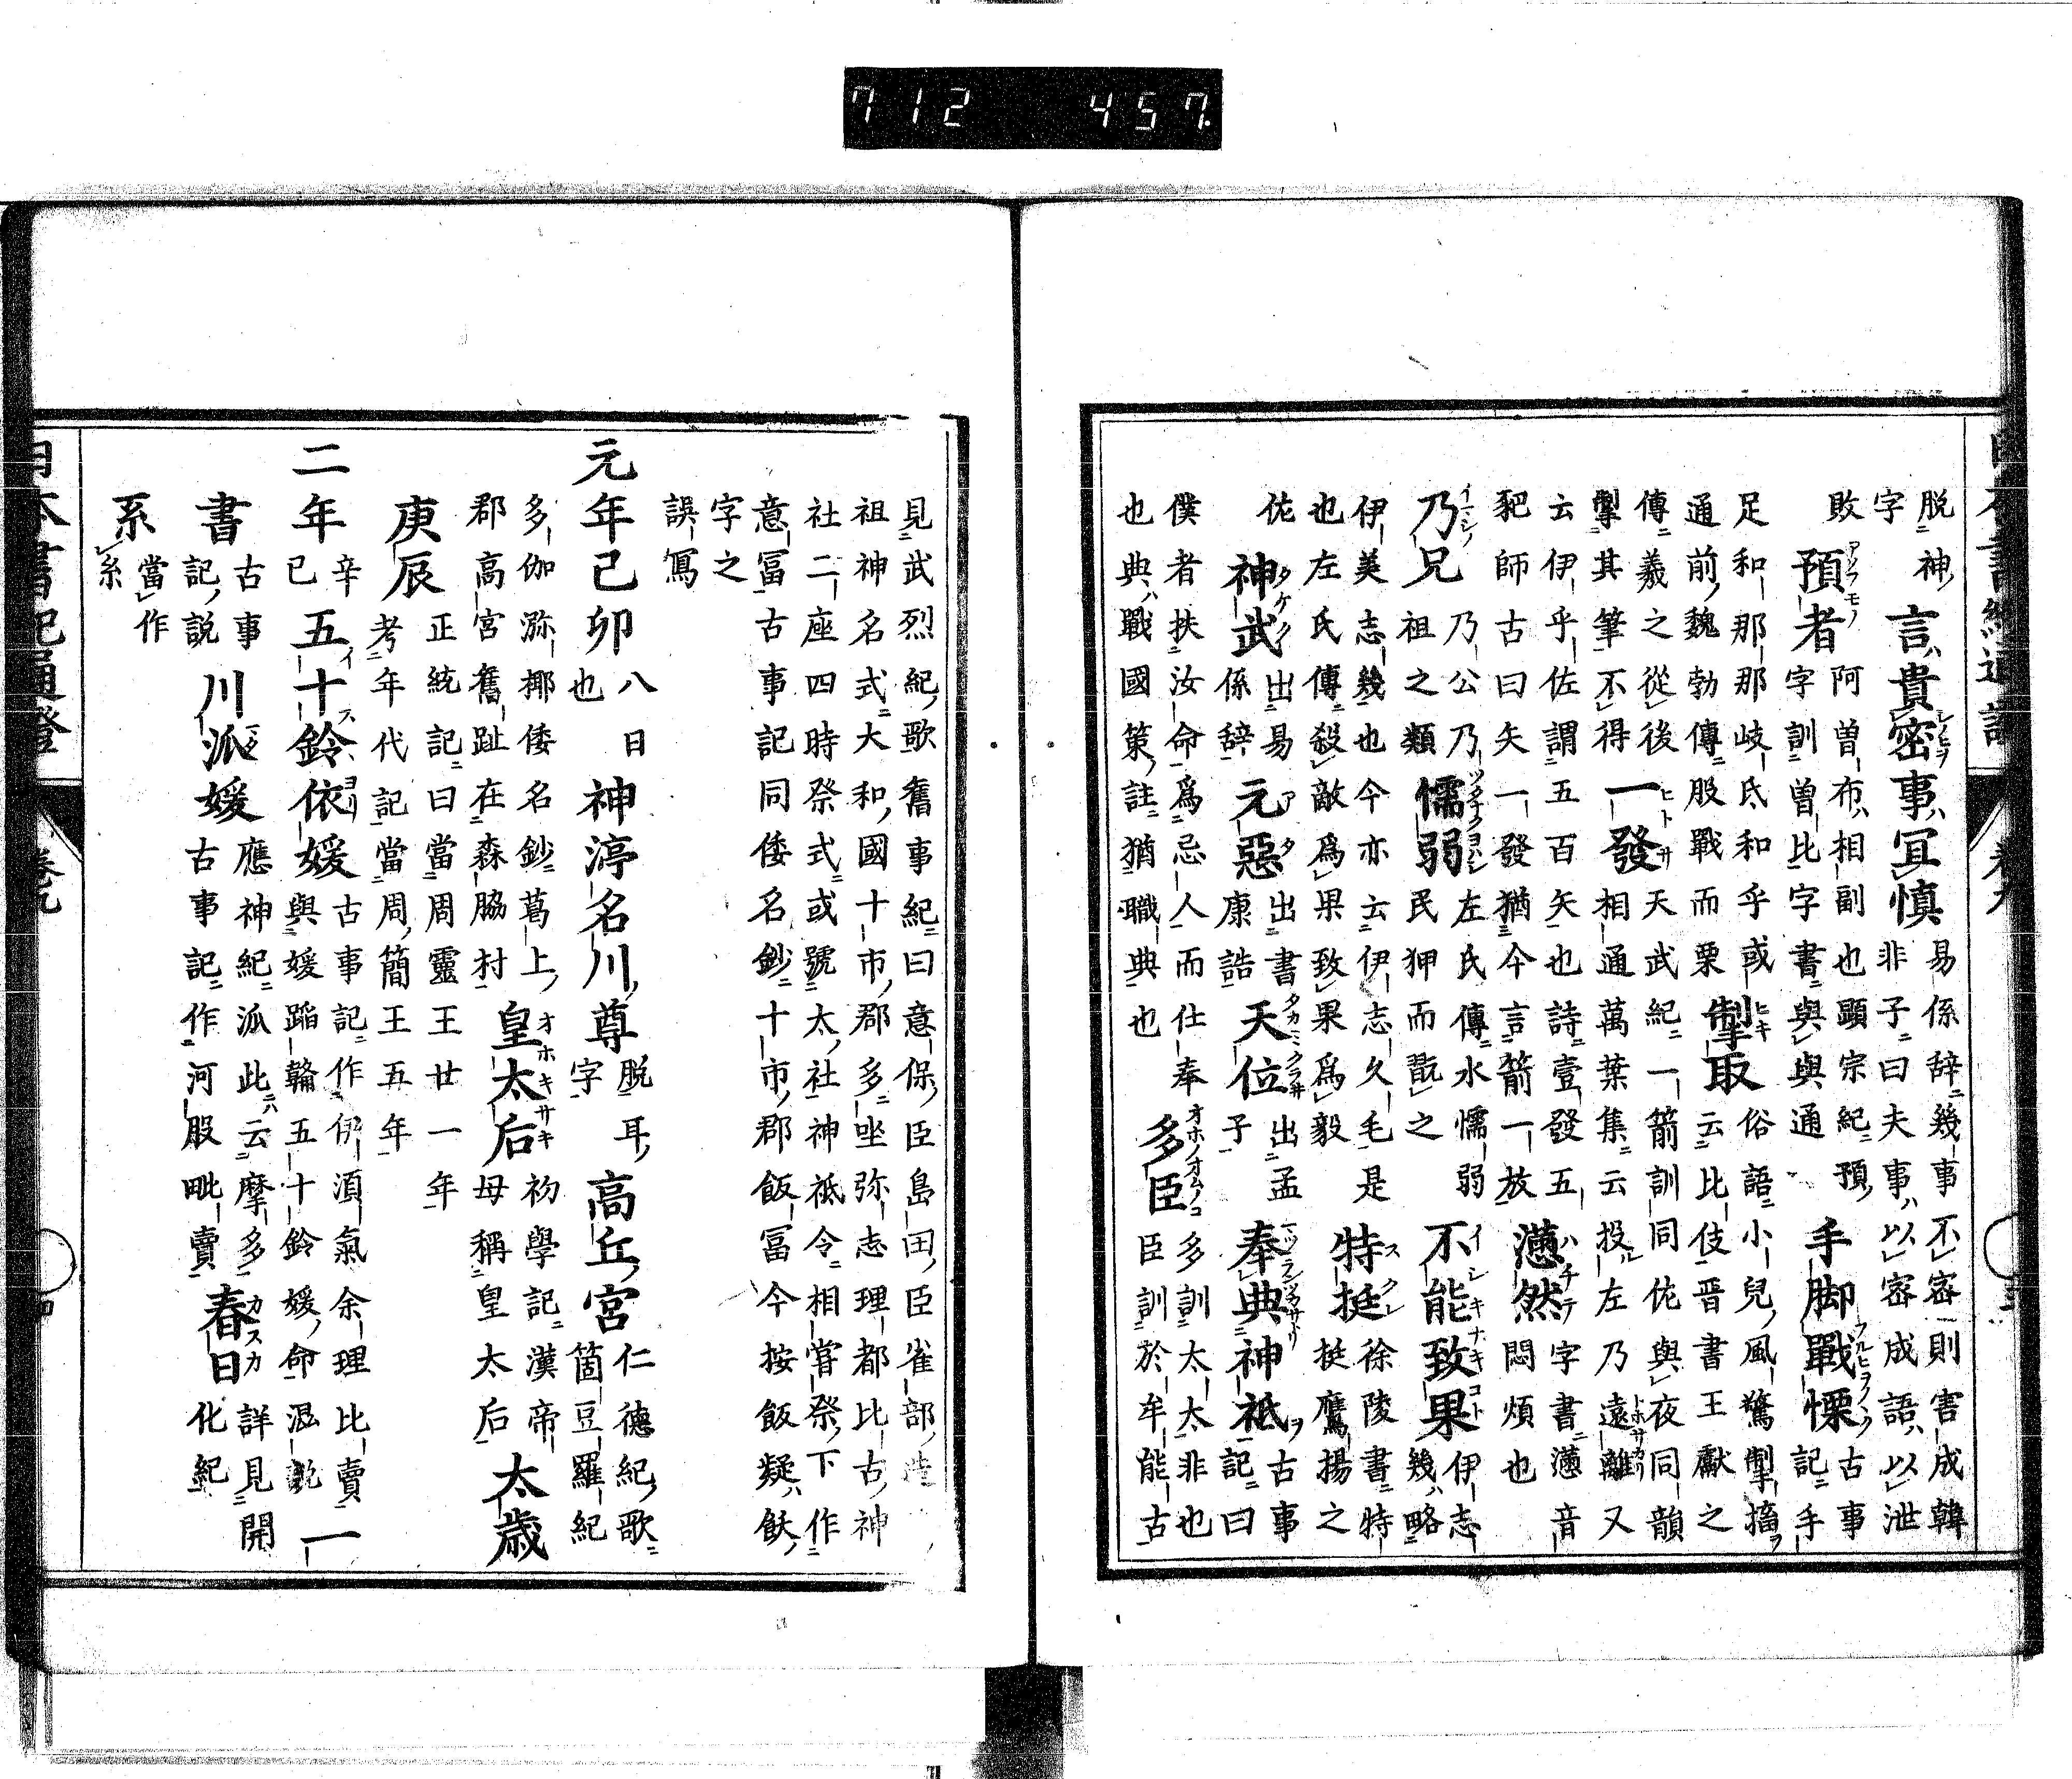 712 457
脱神字
言貴密事宜慎
易係辞幾事不密則害成韓
非子曰夫事以密成語以泄
敗
預者
阿曽布相副也顕宗紀預
字訓曽比字書與與通
手脚戰慄
古事
記手
足和那那岐氐和乎或
通前魏勃傳股戰而栗
掣取
俗語小兒風驚掣搐
云比伎晋書王獻之
傳羲之從後
掣其筆不得
一發
天武紀一箭訓同佐與夜同韻
相通萬葉集云投左乃遠離又
云伊乎佐謂五百矢也詩壹發五
豝師古曰矢一發猶今言箭一放
懣然
字書懣音
悶煩也
乃兄
乃公乃
祖之類
懦弱
左氏傳水懦弱
民狎而翫之
不能致果
伊志
幾略
伊美志幾也今亦云伊志久毛是
也左氏傳殺敵爲果致果爲毅
特挺
徐陵書特
挺鷹揚之
佐
神武
出易
係辞
元惡
出書
康誥
天位
出孟
子
奉典神祇
古事
記曰
僕者扶汝命爲忌人而仕奉
也典戰國策註猶職典也
多臣
多訓太太非也
臣訓於牟能古
見武烈紀歌舊事紀曰意保臣島田臣雀部
祖神名式大和國十市郡多坐弥志理都比古神
社二座四時祭式或號太社神祇令相嘗祭下作
意冨古事記同倭名鈔十市郡飯冨今按飯疑飫
字之
誤寫
元年己卯
八日
也
神渟名川尊
脱耳
字
高丘宮
仁德紀歌
箇豆羅紀
多伽瀰椰倭名鈔葛上
郡高宮舊趾在森脇村
皇太后
初學記漢帝
母稱皇太后
太歲
庚辰
正統記曰當周靈王廿一年
考年代記當周簡王五年
二年
辛
巳
五十鈴依媛
古事記作伊湏氣余理比賣
與媛蹈鞴五十鈴媛命混說
一
書
古事
記說
川派媛
應神紀派此云摩多
古事記作河股毗賣
春日
詳見開
化紀
系
當作
糸
日本書紀通證
卷九